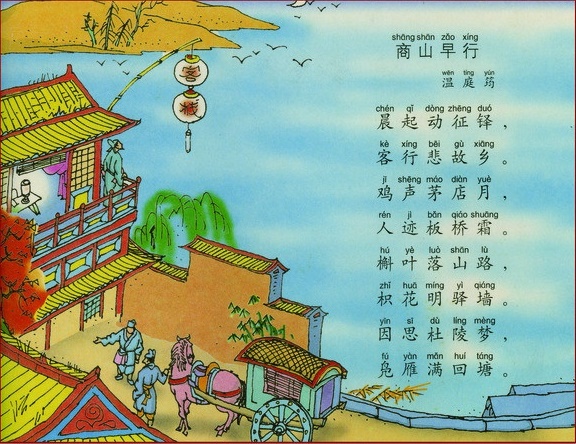 客栈
shāng shān zǎo xíng
商山早行
wēn tíng yún
温庭筠
chén qǐ dòng zhēng duó
晨起动征铎，
kè xíng bēi gù xiāng
客行悲故乡。
jī shēng máo diàn yuè
鸡声茅店月，
rén jì bǎn qiáo shuāng
人迹板桥霜。
hú yè luò shān lù
槲叶落山路，
zhǐ huā míng yì qiáng
枳花明驿墙。
yīn sī dù líng mèng
因思杜陵梦，
fú yàn mǎn huí táng
凫雁满回塘。